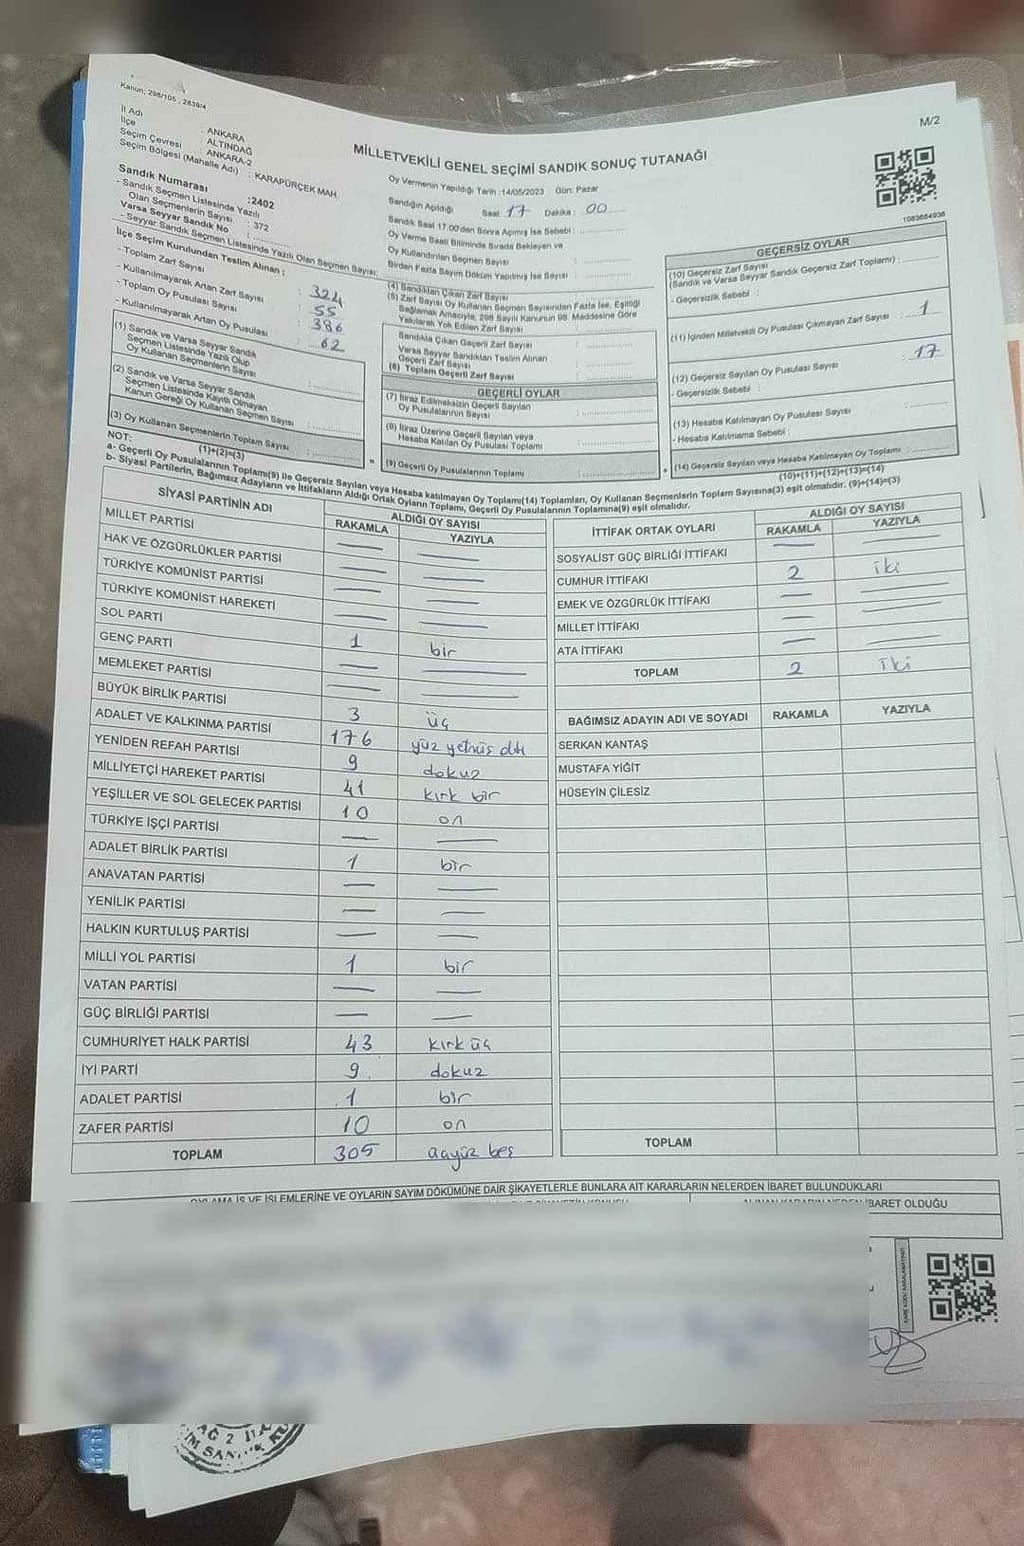 Kanun; 298/105 ; 2839/4
M/2
İl Adı : ANKARA
İlçe : ALTINDAĞ
Seçim Çevresi : ANKARA-2
Seçim Bölgesi (Mahalle Adı) : KARAPÜRÇEK MAH.
MİLLETVEKİLİ GENEL SEÇİMİ SANDIK SONUÇ TUTANAĞI
1083664936
Sandık Numarası :2402
- Sandık Seçmen Listesinde Yazılı
Olan Seçmenlerin Sayısı : 372
Varsa Seyyar Sandık No :
- Seyyar Sandık Seçmen Listesinde Yazılı Olan Seçmen Sayısı:
İlçe Seçim Kurulundan Teslim Alınan :
- Toplam Zarf Sayısı : 324
- Kullanılmayarak Artan Zarf Sayısı : 55
- Toplam Oy Pusulası Sayısı : 386
- Kullanılmayarak Artan Oy Pusulası : 62
(1) Sandık ve Varsa Seyyar Sandık
Seçmen Listesinde Yazılı Olup
Oy Kullanan Seçmenlerin Sayısı
(2) Sandık ve Varsa Seyyar Sandık
Seçmen Listesinde Kayıtlı Olmayan
Kanun Gereği Oy Kullanan Seçmen Sayısı
(3) Oy Kullanan Seçmenlerin Toplam Sayısı
(1)+(2)=(3)
Oy Vermenin Yapıldığı Tarih :14/05/2023 Gün: Pazar
Sandığın Açıldığı Saat: 17 Dakika : 00
Sandık Saat 17.00'den Sonra Açılmış İse Sebebi :
Oy Verme Saati Bitiminde Sırada Bekleyen ve
Oy Kullandırılan Seçmen Sayısı :
Birden Fazla Sayım Döküm Yapılmış İse Sayısı :
(4) Sandıktan Çıkan Zarf Sayısı
(5) Zarf Sayısı Oy Kullanan Seçmen Sayısından Fazla İse, Eşitliği
Bağlamak Amacıyla, 298 Sayılı Kanunun 98. Maddesine Göre
Yakılarak Yok Edilen Zarf Sayısı
Sandıkta Çıkan Geçerli Zarf Sayısı
Varsa Seyyar Sandıktan Teslim Alınan
Geçerli Zarf Sayısı
(6) Toplam Geçerli Zarf Sayısı
GEÇERLİ OYLAR
(7) İtiraz Edilmeksizin Geçerli Sayılan
Oy Pusulalarının Sayısı
(8) İtiraz Üzerine Geçerli Sayılan veya
Hesaba Katılan Oy Pusulası Toplamı
(9) Geçerli Oy Pusulalarının Toplamı
GEÇERSİZ OYLAR
(10) Geçersiz Zarf Sayısı
(Sandık ve Varsa Seyyar Sandık Geçersiz Zarf Toplamı) :
- Geçersizlik Sebebi :
(11) İçinden Milletvekili Oy Pusulası Çıkmayan Zarf Sayısı : 1
(12) Geçersiz Sayılan Oy Pusulası Sayısı : 17
- Geçersizlik Sebebi :
(13) Hesaba Katılmayan Oy Pusulası Sayısı
- Hesaba Katılmama Sebebi :
(14) Geçersiz Sayılan veya Hesaba Katılmayan Oy Toplamı
(10)+(11)+(12)+(13)=(14)
NOT:
a- Geçerli Oy Pusulalarının Toplamı(9) ile Geçersiz Sayılan veya Hesaba katılmayan Oy Toplamı(14) Toplamları, Oy Kullanan Seçmenlerin Toplam Sayısına(3) eşit olmalıdır. (9)+(14)=(3)
b- Siyasi Partilerin, Bağımsız Adayların ve İttifakların Aldığı Ortak Oyların Toplamı, Geçerli Oy Pusulalarının Toplamına(9) eşit olmalıdır.
SİYASİ PARTİNİN ADI ALDIĞI OY SAYISI
RAKAMLA YAZIYLA
MİLLET PARTİSI — —
HAK VE ÖZGÜRLÜKLER PARTİSİ — —
TÜRKİYE KOMÜNİST PARTİSİ — —
TÜRKİYE KOMÜNİST HAREKETİ — —
SOL PARTİ 1 bir
GENÇ PARTİ — —
MEMLEKET PARTİSİ — —
BÜYÜK BİRLİK PARTİSİ 3 üç
ADALET VE KALKINMA PARTİSİ 176 yüz yetmiş altı
YENİDEN REFAH PARTİSİ 9 dokuz
MİLLİYETÇİ HAREKET PARTİSİ 41 kırk bir
YEŞİLLER VE SOL GELECEK PARTİSİ 10 on
TÜRKİYE İŞÇİ PARTİSİ — —
ADALET BİRLİK PARTİSİ 1 bir
ANAVATAN PARTİSİ — —
YENİLİK PARTİSİ — —
HALKIN KURTULUŞ PARTİSİ — —
MİLLİ YOL PARTİSİ 1 bir
VATAN PARTİSİ — —
GÜÇ BİRLİĞİ PARTİSİ — —
CUMHURİYET HALK PARTİSİ 43 kırk üç
İYİ PARTİ 9 dokuz
ADALET PARTİSİ 1 bir
ZAFER PARTİSİ 10 on
TOPLAM 305 üçyüz beş
İTTİFAK ORTAK OYLARI ALDIĞI OY SAYISI
RAKAMLA YAZIYLA
SOSYALİST GÜÇ BİRLİĞİ İTTİFAKI — —
CUMHUR İTTİFAKI 2 iki
EMEK VE ÖZGÜRLÜK İTTİFAKI — —
MİLLET İTTİFAKI — —
ATA İTTİFAKI — —
TOPLAM 2 iki
BAĞIMSIZ ADAYIN ADI VE SOYADI RAKAMLA YAZIYLA
SERKAN KANTAŞ
MUSTAFA YİĞİT
HÜSEYİN ÇİLESİZ
TOPLAM
OYLAMA İŞ VE İŞLEMLERİNE VE OYLARIN SAYIM DÖKÜMÜNE DAİR ŞİKAYETLERLE BUNLARA AİT KARARLARIN NELERDEN İBARET BULUNDUKLARI
ALINAN KARARIN NEDEN İBARET OLDUĞU